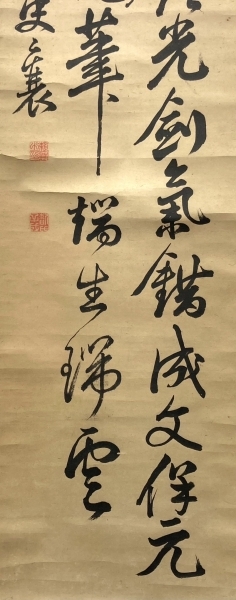 光劍氣錯成文保元
筆端生瑞雲
史襄